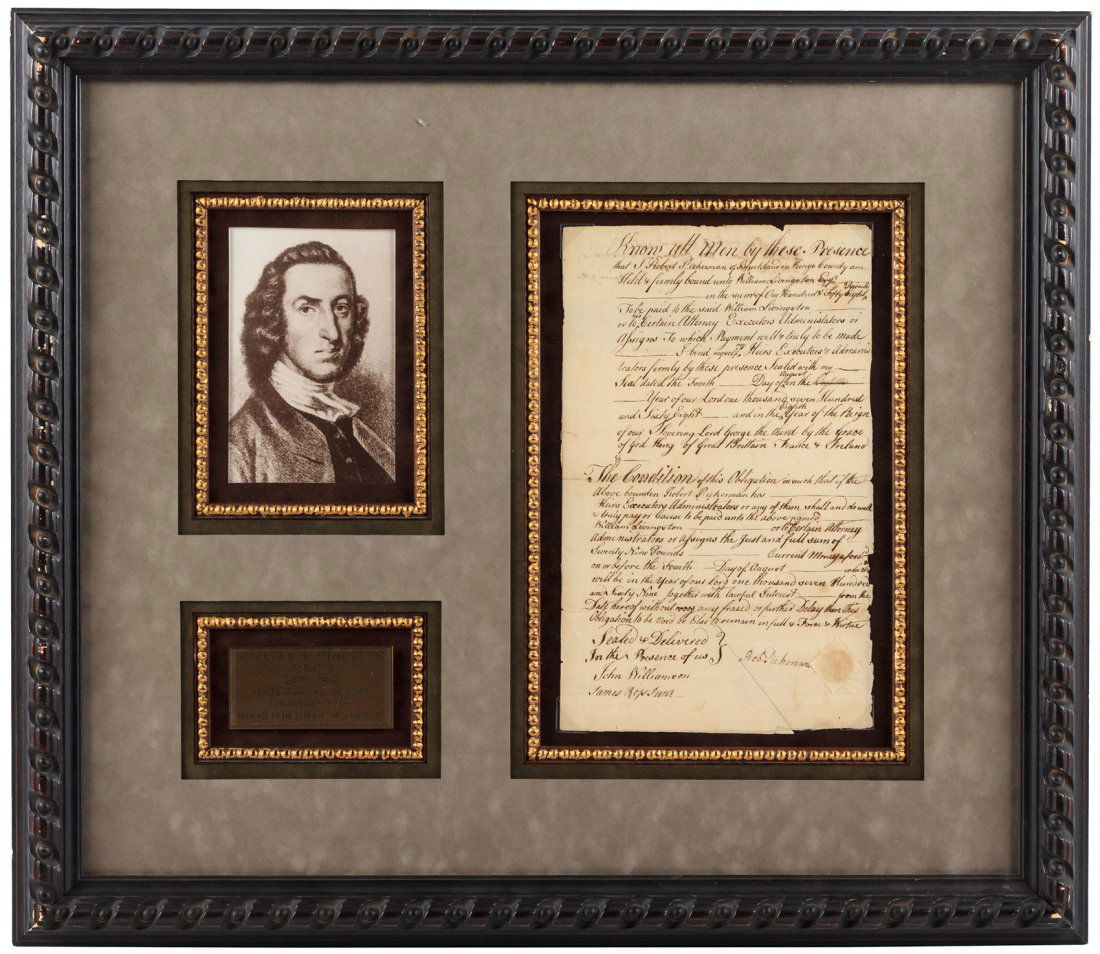 Know all Men by these Presence
that I Robert Pickerman of in Kings County am
Held & firmly bound unto William Livingston Esqr
in the sum of One Hundred & Fifty Eight
To be paid to the said William Livingston
or to his Certain Attorney Executors Administators or
Assigns To which Payment well & truly to be made
I bend myself my Heirs Executors & Adminis
trators firmly by these presence Sealed with my
Seal dated the Fourth Day of August in the
Year of our Lord one thousand seven Hundred
and Sixty Eight and in the Eighth Year of the Reign
of our Sovering Lord George the third by the Grace
of God King of Great Brittain France & Ireland
&
The Condition of this Obligation is such that if the
Above bounden Robert Pickerman his
Heirs Executors Administrators or any of them shall and do well
& truly pay or Cause to be paid unto the above named
William Livingston or to Certain Attorney
Administrators or Assigns the Just and full sum of
Seventy Nine Pounds Current Money
on or before the Fourth Day of August which
will be in the Year of our Lord one thousand seven Hundred
and Sixty Nine together with lawful Interest from the
Date hereof without any fraud or further Delay then this
Obligation to be Void Or Else to remain in full & Force & Virtue
Sealed & Delivered
In the Presence of us
John Williamson
James